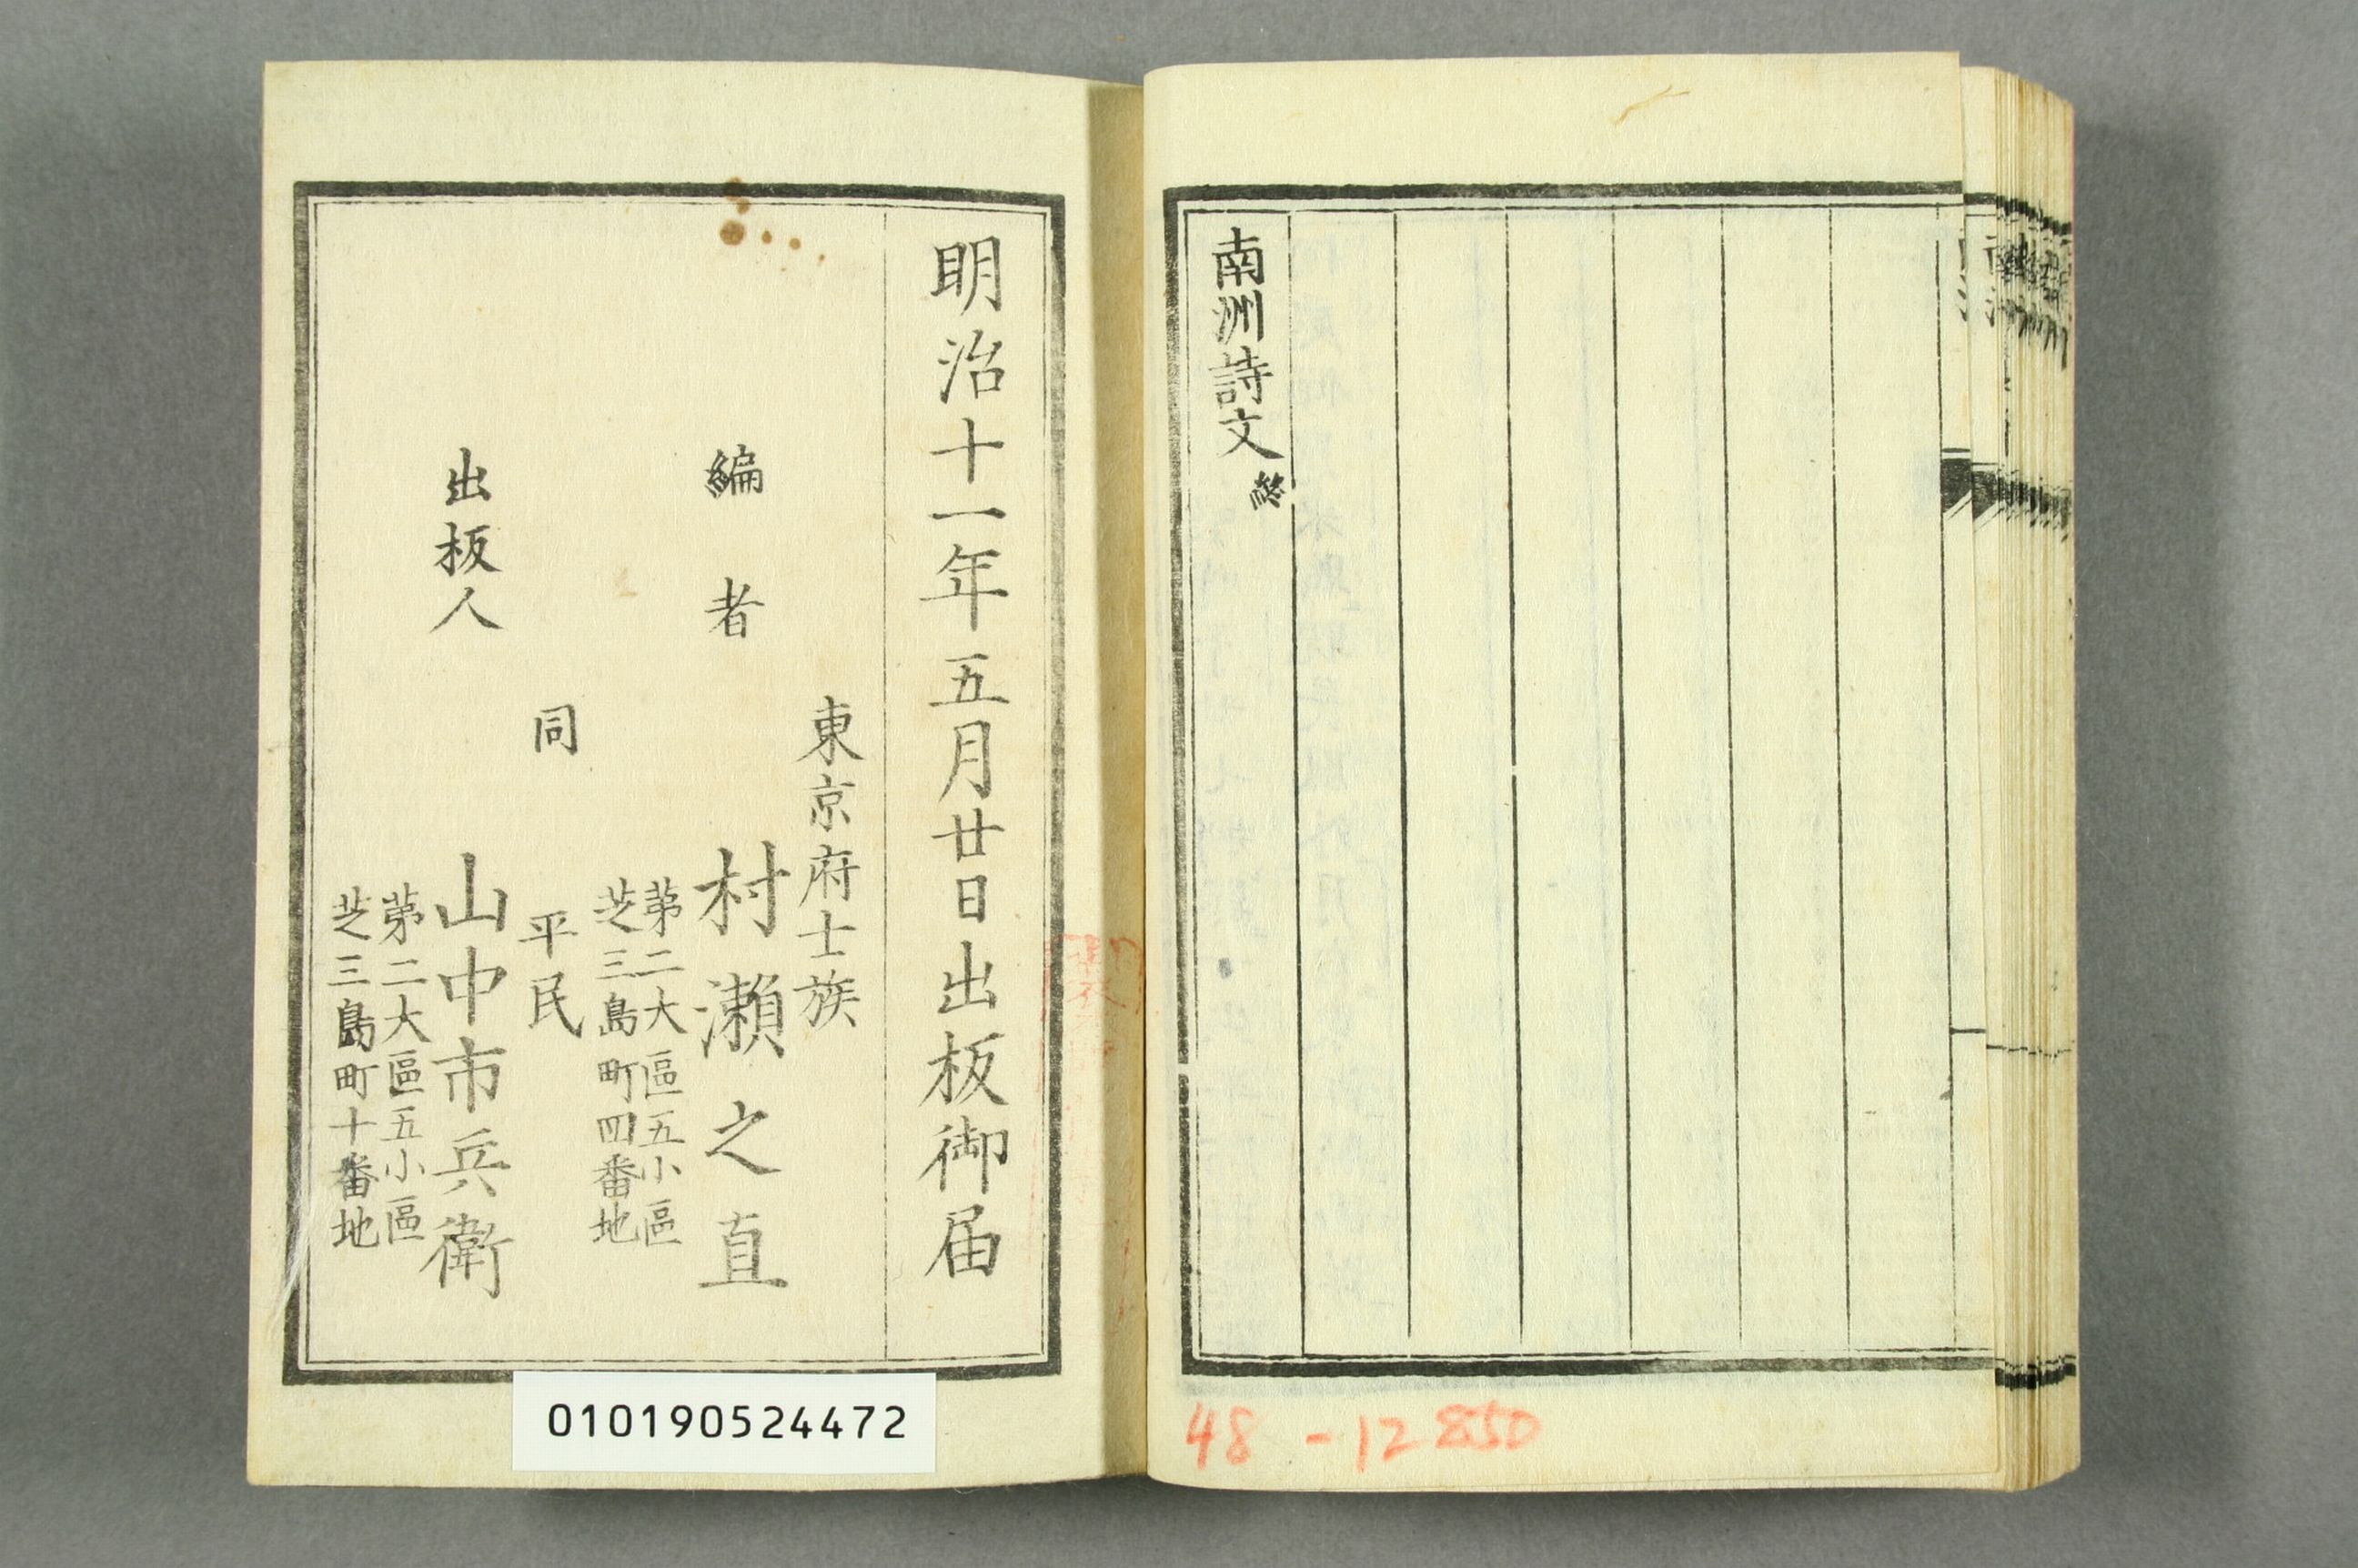 南洲詩文終
48 -12850
明治十一年五月廿日出板御届
東京府士族
編者 村瀬之直
苐二大區五小區
芝三島町四番地
同 平民
出板人 山中市兵衛
苐二大區五小區
芝三島町十番地
010190524472